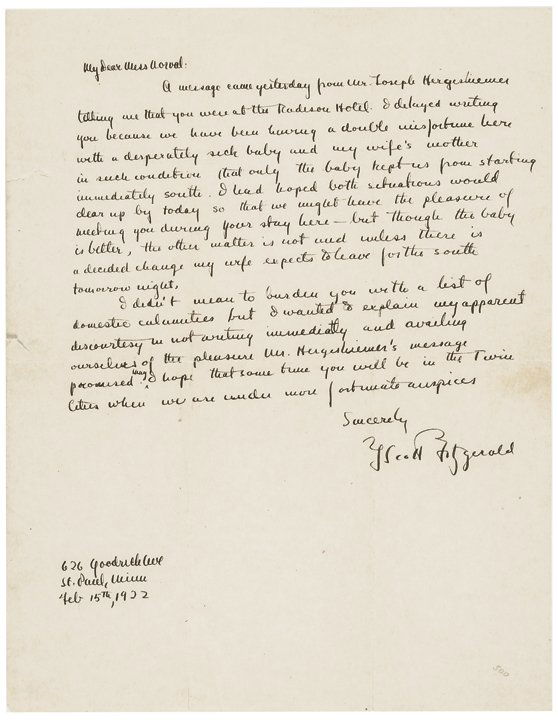 My Dear Miss Norval:
A message came yesterday from Mr. Joseph Hergesheimer
telling me that you were at the Radison Hotel. I delayed writing
you because we have been having a double misfortune here
with a desperately sick baby and my wife's mother
in such condition that only the baby kept us from starting
immediately south. I had hoped both situations would
clear up by today so that we might have the pleasure of
meeting you during your stay here — but though the baby
is better, the other matter is not and unless there is
a decided change my wife expects to leave for the south
tomorrow night.
I didn't mean to burden you with a list of
domestic calamities but I wanted to explain my apparent
discourtesy in not writing immediatly and availing
ourselves of the pleasure Mr. Hergesheimer's message
promised. May I hope that some time you will be in the Twin
Cities when we are under more fortunate auspices
Sincerely
F Scott Fitzgerald
626 Goodrich Ave
St. Paul, Minn
Feb 15th, 1922
500